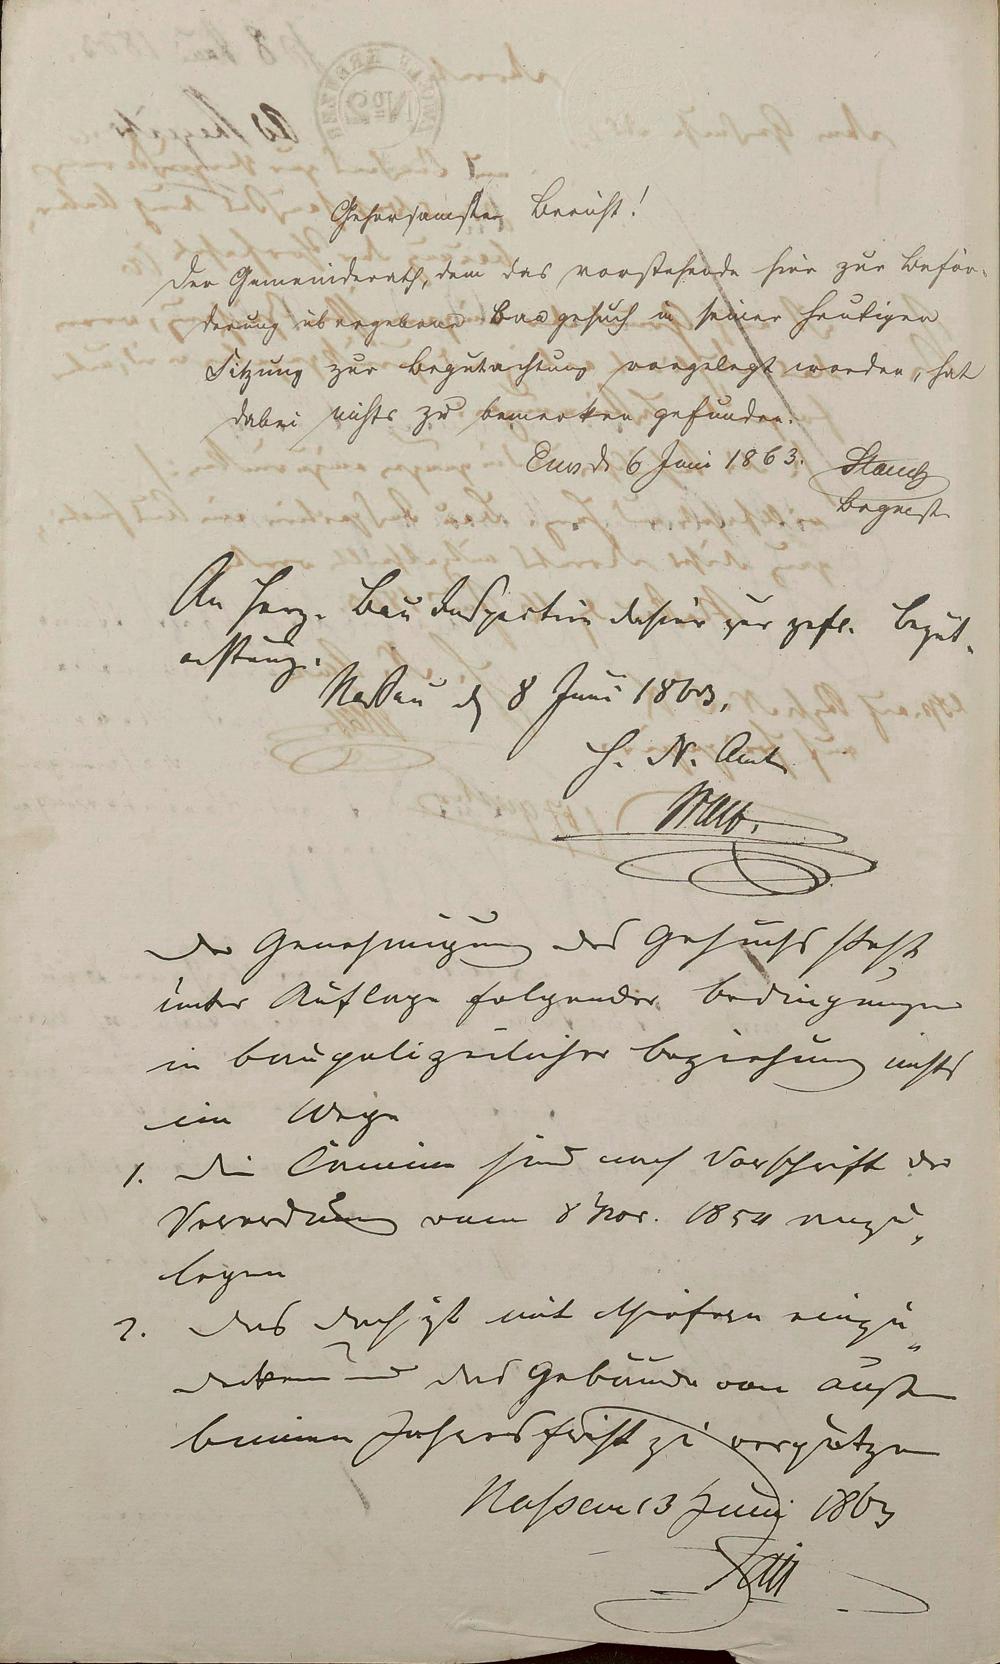 Gehorsamster Bericht!
Der Gemeinderath, dem das vorstehende hier zur Beför-
derung übergebene Baugesuch in seiner heutigen
Sitzung zur Begutachtung vorgelegt worden, hat
dabei nichts zu bemerken gefunden.
Ems d 6 Juni 1863.
An Herz. Bau Inspection dahier zur gefl. Begut-
achtung.
Nassau d 8 Juni 1863.
H. N. Amt
Der Genehmigung des Gesuchs steht
unter Auflage folgender Bedingungen
in baupolizeilicher Beziehung nichts
im Wege
1. Die Camine sind nach Vorschrift der
Verordnung vom 8 Nov. 1854 anzu„
legen
2. Das Dach ist mit Schiefern einzu„
decken und das Gebäude von außen
binnen Jahresfrist zu verputzen
Nassau 13 Juni 1863